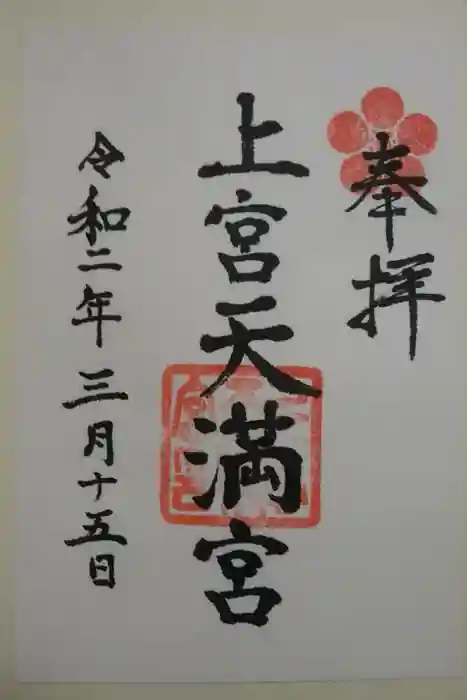 奉拝
上宮天満宮
令和二年三月十五日